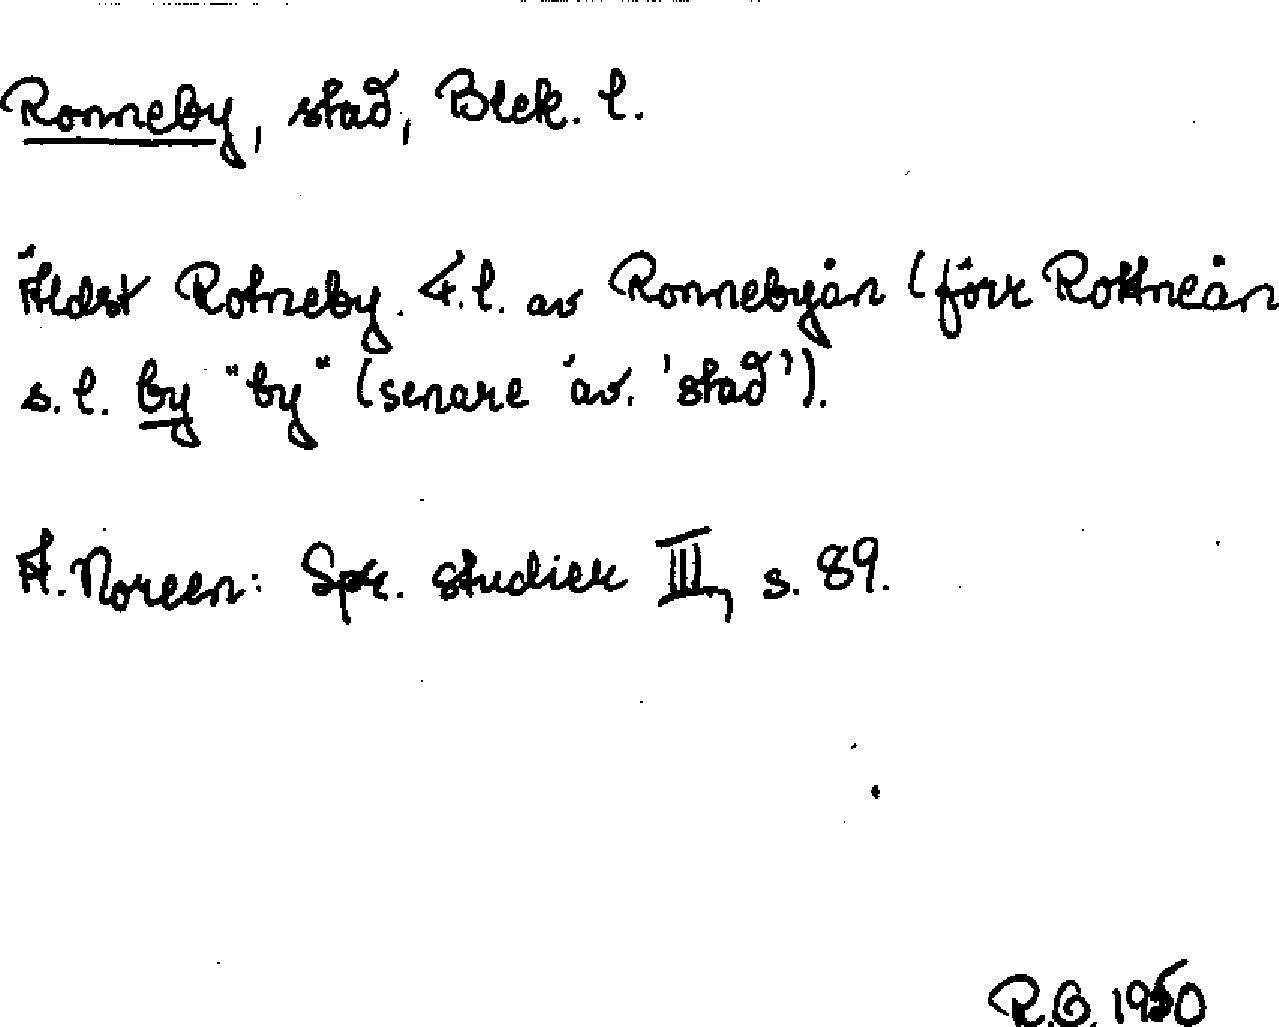 Ronneby, stad, Blek. l.
Äldst Rotneby. F.l. av Ronnebyån (förr Rottneån
s.l. by "by" (senare äv. 'stad').
A. Noreen: Spr. studier III, s. 89.
R.O. 1950